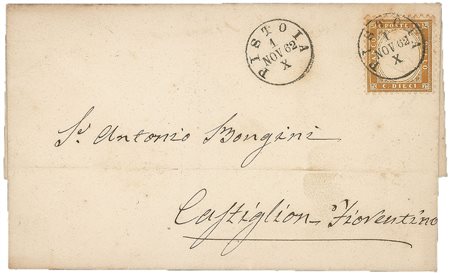 PISTOIA
1
NOV 62
X
PISTOIA
1
NOV 62
X
C. DIECI
S.r Antonio Bongini
Castiglion-Fiorentino